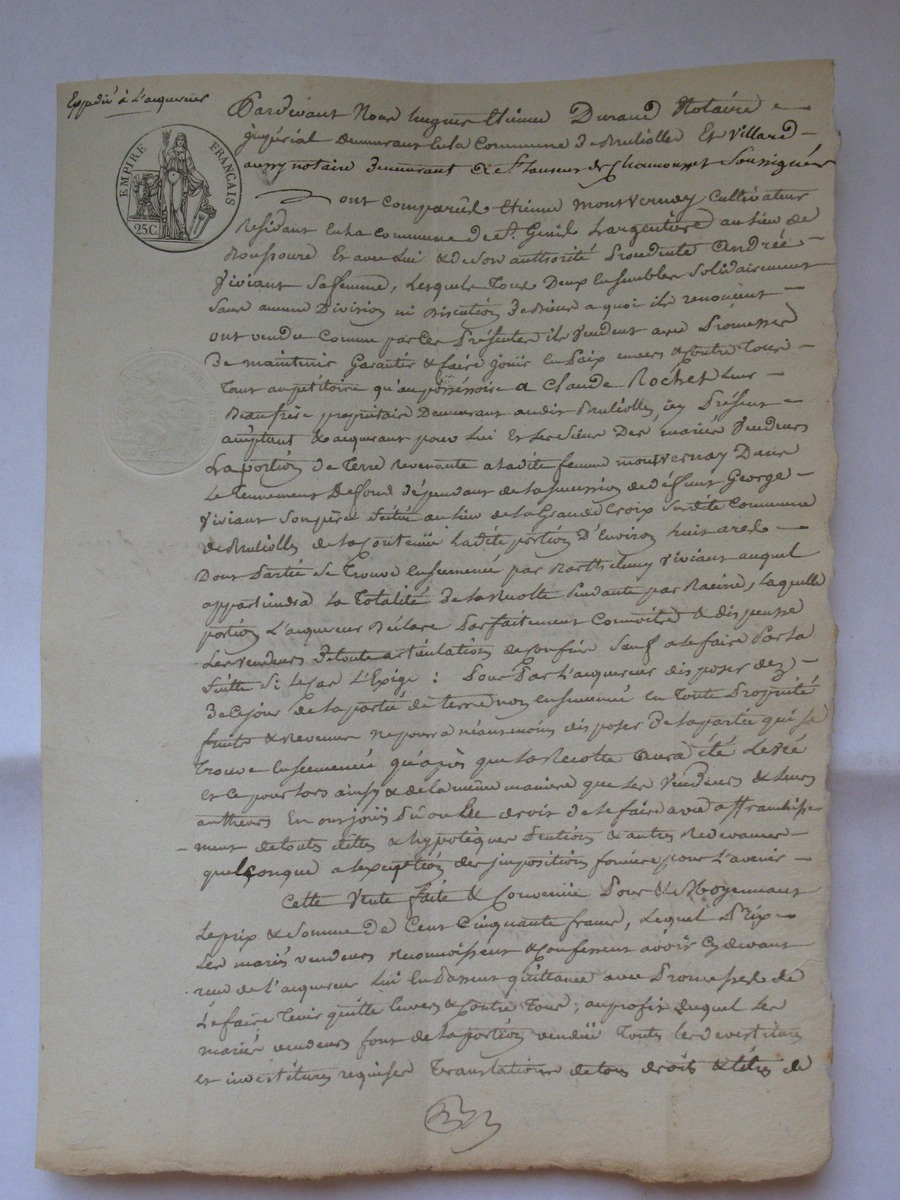 Expedié à l'acquereur
EMPIRE FRANÇAIS
25C.
Pardevant Nous hugues Etienne Durand Notaire
impérial demeurant en la Commune de Brullolles Et Villard
aussy notaire demeurant de St Laurent de Chamousset Soussignés
ont comparûs Etienne montvernay Cultivateur
Residant en la commune de St. Genis Largentiere au lieu de
Et avec Lui & de son authorité Prudente Andrée
Viviant Sa femme, Lesquels Tous Deux Ensembles Solidairement
Sans aucune Division ni Discution de Biens a quoi ils renoncent
ont vendu Comme par Ces Présentes ils Vendent avec Promesse
De maintenir Garantir & faire jouir En Paix envers & Contre Tous
Tant au petitoire qu'au possessoire a Claude Rochet Leur
Beaufrère propriétaire Demeurant audit Brullolles, icy Présent
acceptant & acquerant pour Lui Et Les Siens Des mariés Vendeurs
La portion de Terre revenante a Ladite femme montvernay Dans
Le Tennement Defond dépendant de La succession de deffunt George
Viviant Son père Située au lieu de La Grande Croix Susdite Commune
de Brullolles de La Contenüe Ladite portion D'Environ huit ares
Dont Partie se Trouve Ensemencée par Barthelemy Viviant auquel
appartiendra La Totalité de La Recolte Pendante par Racine, Laquelle
portion L'acquereur Déclare Parfaitement Connoitre & dispense
Les Vendeurs de toute articulation de Confins Sauf a le faire Par La
Suitte Si le Cas L'Exige : Pour Par L'acquereur disposer dez
De Ce jour de La partie de terre non ensemencée En Toute Propriété
fruits & revenus ne pourra néansmoins disposer De La partie qui se
Trouve Ensemencée qu'après que La Recolte aura été Levée
et Ce pour Lors ainsy & de la même maniere que Les Vendeurs & Leurs
autheurs En ont joüis Pû ou Dû droit de le faire avec affranchisse-
ment de touts dettes & hypotèques Pentions & autres Redevances
quelconque a l'exception des impositions foncière pour L'avenir
Cette Vente faite & Convenüe Pour & Moyennant
Le prix & Somme De Cent Cinquante francs, Lequel Prix
Les mariés vendeurs Reconnoissent & Confessent avoir Cy devant
reçu de L'acquereur Lui En Passent quittance avec Promesse de
Le faire Tenir quitte Envers & Contre Tous, au profit duquel Les
mariés vendeurs font de La portion vendüe Toutes Les devestitures
et investitures requises Translations de tous droits & titres de